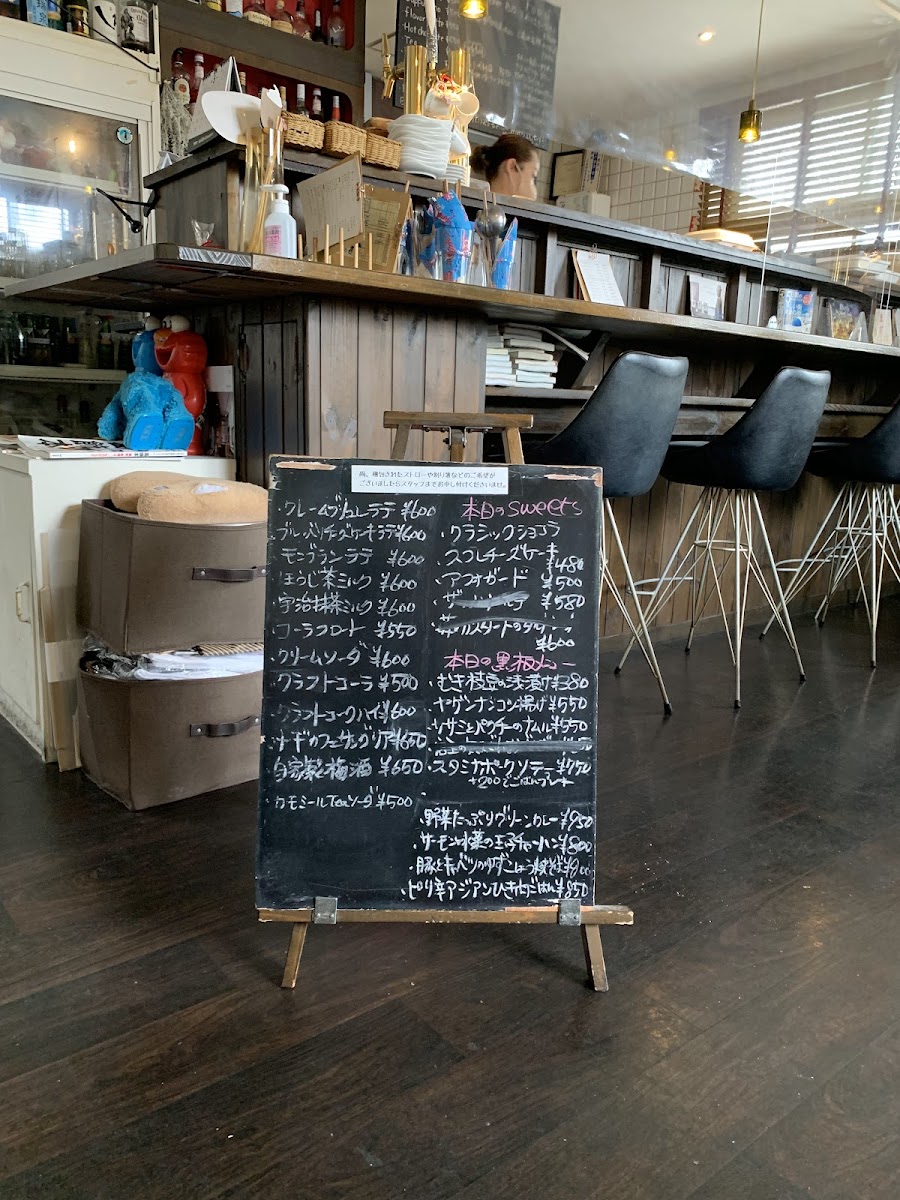 flavor
Hot chocolate
Tea
尚、梱包されたストローや割り箸などのご希望が
ございましたらスタッフまでお申し付けくださいませ。
・クレームブリュレラテ ¥600
・ブルーベリーチーズケーキラテ ¥600
・モンブランラテ ¥600
・ほうじ茶ミルク ¥600
・宇治抹茶ミルク ¥600
・コーラフロート ¥550
・クリームソーダ ¥600
・クラフトコーラ ¥500
・クラフトコークハイ ¥600
・ナギカフェサングリア ¥650
・自家製梅酒 ¥650
・カモミールTeaソーダ ¥500
本日のsweets
・クラシックショコラ
・スフレチーズケーキ
¥480
・アフォガード ¥500
¥580
¥600
本日の黒板メニュー
・むき枝豆の浅漬け ¥380
・ヤゲンナンコツ揚げ ¥550
・ササミとパクチーのナムル ¥550
・スタミナポークソテー ¥750
+200でごはんプレート
・野菜たっぷりグリーンカレー ¥950
・サーモンと水菜の玉子チャーハン ¥800
・豚とキャベツのゆずこしょう焼そば ¥800
・ピリ辛アジアンひき肉ごはん ¥850